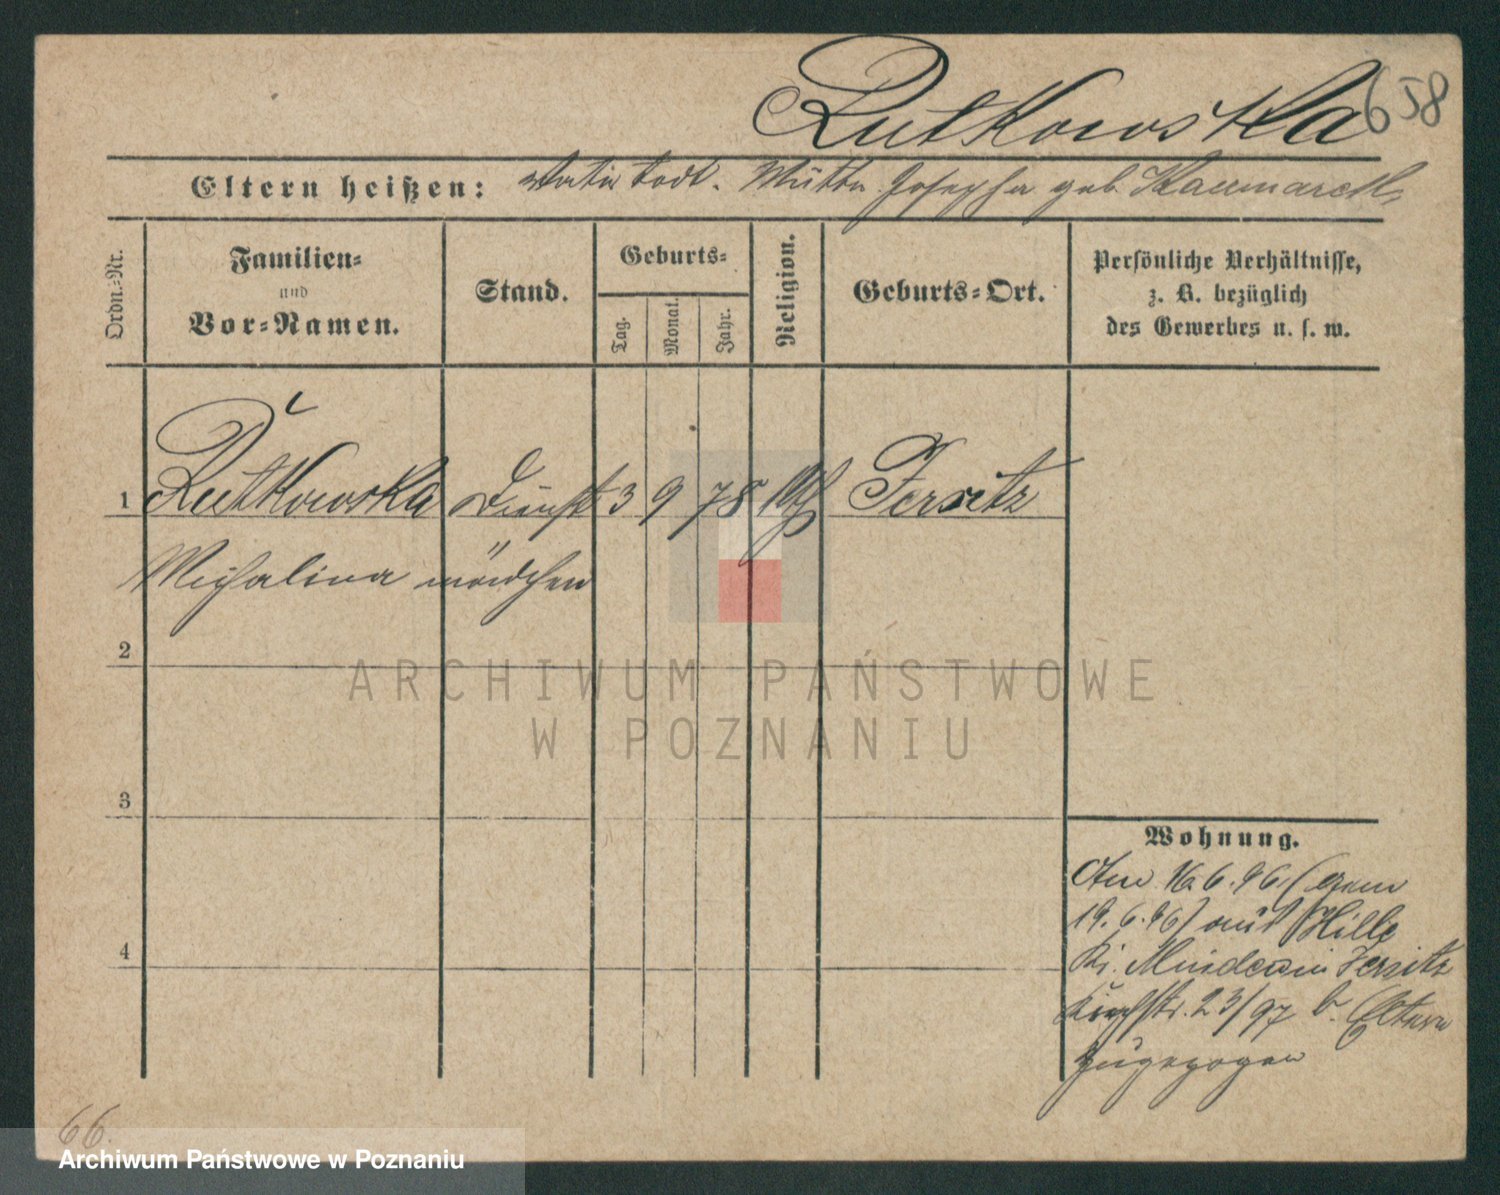 Rutkowska 658
Eltern heißen: Vater todt. Mutter Josepha geb.
Ordn.-Nr.
Familien-
und
Vor-Namen.
Stand.
Geburts-
Tag.
Monat.
Jahr.
Religion.
Geburts-Ort.
Persönliche Verhältnisse,
z. B. bezüglich
des Gewerbes u. s. w.
1 Rutkowska Dienst 3 9 78 Jersitz
Michalina mädchen
2
ARCHIWUM PAŃSTWOWE
W POZNANIU
3
Wohnung.
Am 16.6.96 (
19.6.96) aus
4
Jersitz
Kirchstr. 23/97 b. Eltern
zugezogen
66.
Archiwum Państwowe w Poznaniu